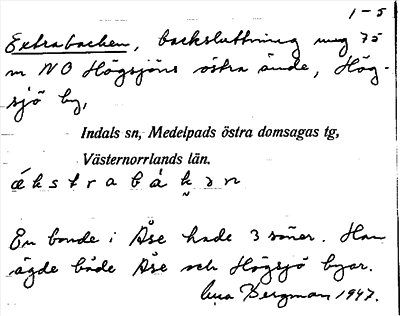 1-5
Extrabacken, backsluttning ung 75
m NO Högsjöns östra ände, Hög-
sjö by,
Indals sn, Medelpads östra domsagas tg,
Västernorrlands län.
ǽkstrabàk̬ən
En bonde i Åse hade 3 söner. Han
ägde både Åse och Högsjö byar.
Bergman 1947.